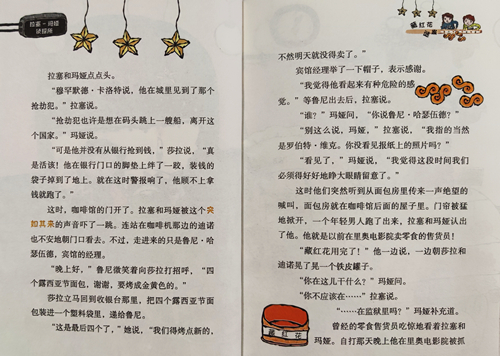 拉塞·玛娅
侦探所
拉塞和玛娅点点头。
“穆罕默德·卡洛特说，他在城里见到了那个
抢劫犯。”拉塞说。
“抢劫犯也许是想在码头跳上一艘船，离开这
个国家。”玛娅说。
“可是他并没有从银行抢到钱，”莎拉说，“真
是活该！他在银行门口的脚垫上绊了一跤，装钱的
袋子掉到了地上。就在这时警报响了，他顾不上拿
钱就跑了。”
这时，咖啡馆的门开了。拉塞和玛娅被这个突
如其来的声音吓了一跳。连站在咖啡机那边的迪诺
也不安地朝门口看去。不过，走进来的只是鲁尼·哈
瑟伍德，宾馆的经理。
“晚上好，”鲁尼微笑着向莎拉打招呼，“四
个露西亚节面包，谢谢，要烤成金黄色的。”
莎拉立马回到收银台那里，把四个露西亚节面
包装进一个塑料袋里，递给鲁尼。
“这是最后四个了，”她说，“我们得烤点新的，
藏红花
不然明天就没得卖了。”
宾馆经理举了一下帽子，表示感谢。
“我觉得他看起来有种危险的感
觉。”等鲁尼出去后，拉塞说。
“谁？”玛娅问，“你说鲁尼·哈瑟伍德？”
“别这么说，玛娅，”拉塞说，“我指的当然
是罗伯特·维克。你没看见报纸上的照片吗？”
“看见了，”玛娅说，“我觉得这段时间我们
必须得好好地睁大眼睛留意了。”
这时他们突然听到从面包房里传来一声绝望的
喊叫，面包房就在咖啡馆后面的屋子里。门帘被猛
地掀开，一个年轻男人跑了出来，拉塞和玛娅认出
了他。他就是以前在里奥电影院卖零食的售货员！
“藏红花用完了！”他一边说，一边朝莎拉和
迪诺晃了晃一个铁皮罐子。
“你在这儿干什么？”玛娅问。
“你不应该在……”拉塞说。
“……在监狱里吗？”玛娅补充道。
曾经的零食售货员吃惊地看着拉塞和
玛娅。自打那天晚上他在里奥电影院被抓
藏红花